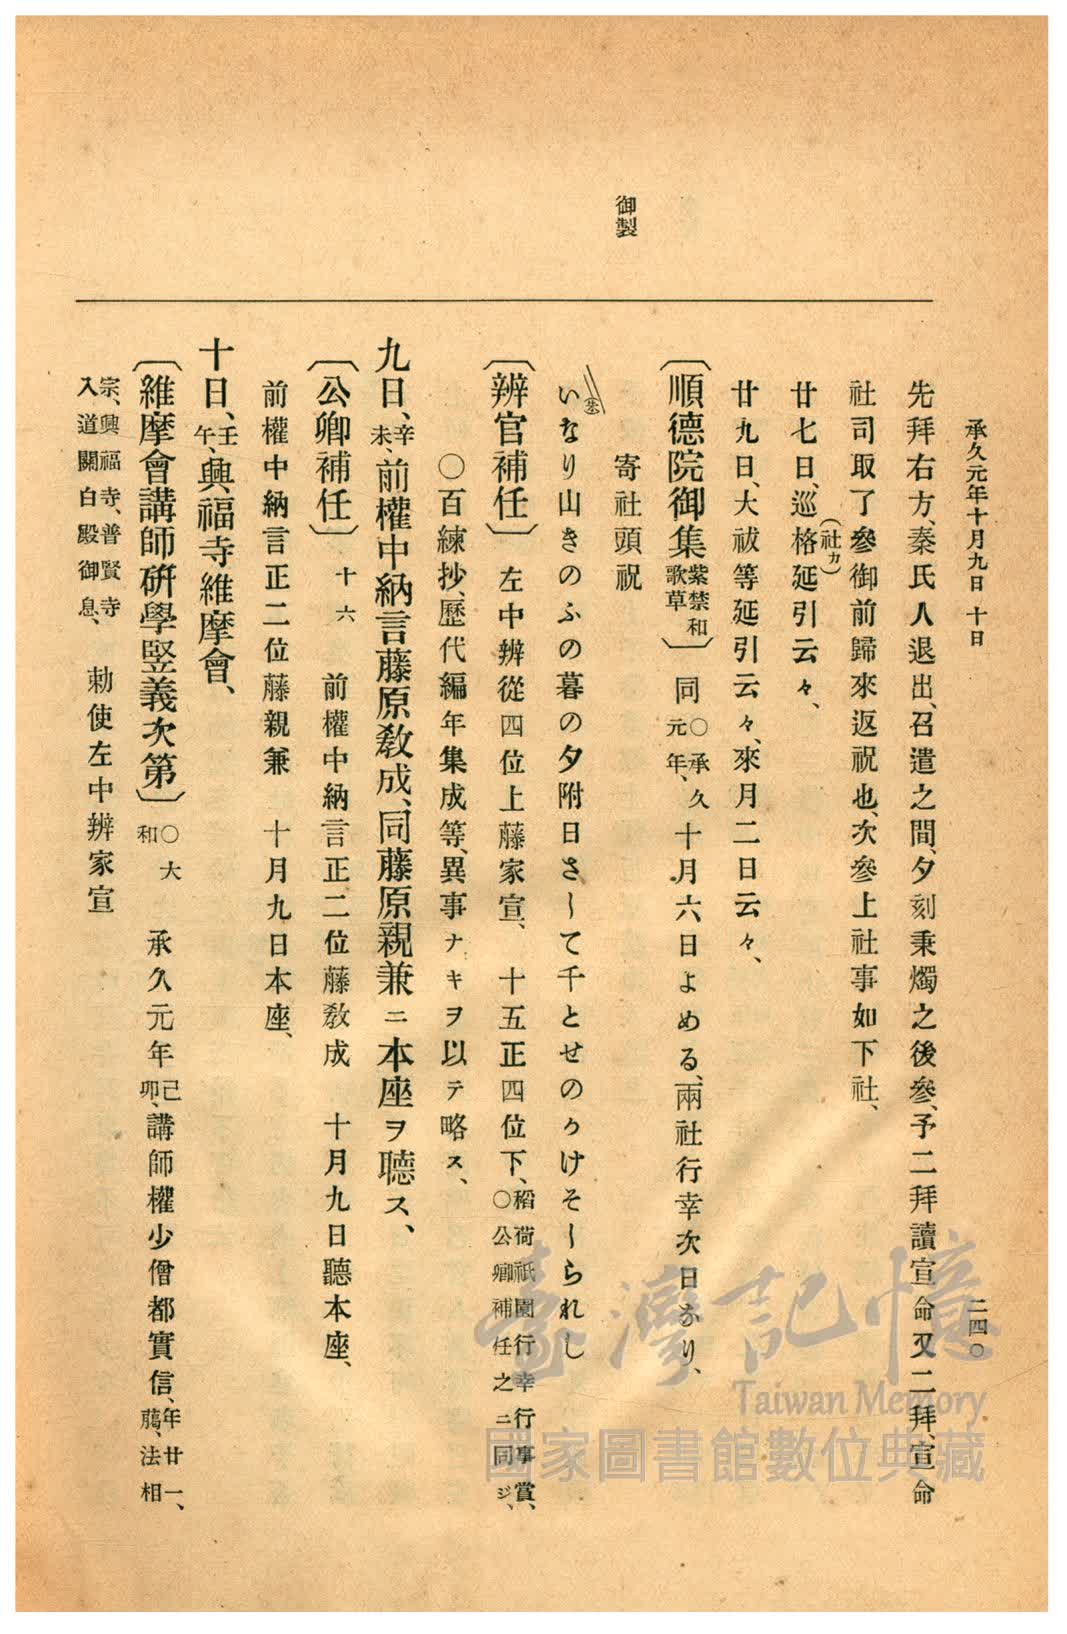 承久元年十月九日 十日
二四〇
御製
先拜右方、秦氏人退出、召遣之間、夕刻秉燭之後參、予二拜讀宣命又二拜、宣命
社司取了參御前歸來返祝也、次參上社事如下社、
廿七日、巡格延引云々、
(社カ)
廿九日、大祓等延引云々、來月二日云々、
〔順德院御集紫禁和歌草〕 同〇承久元年、十月六日よめる、兩社行幸次日なり、
寄社頭祝
いなり山きのふの暮の夕附日さして千とせのかけそしられし
〔辨官補任〕 左中辨從四位上藤家宣、 十五正四位下、稻荷祇園行幸行事賞、〇公卿補任之ニ同ジ、
〇百練抄、歷代編年集成等、異事ナキヲ以テ略ス、
九日、辛未、前權中納言藤原敎成、同藤原親兼ニ本座ヲ聽ス、
〔公卿補任〕 十六 前權中納言正二位藤敎成 十月九日聽本座、
前權中納言正二位藤親兼 十月九日本座、
十日、壬午、興福寺維摩會、
〔維摩會講師硏學竪義次第〕 〇大和 承久元年己卯、講師權少僧都實信、年廿一、﨟、法相
宗、興福寺、普賢寺入道關白殿御息、 勅使左中辨家宣
臺灣記憶
Taiwan Memory
國家圖書館數位典藏